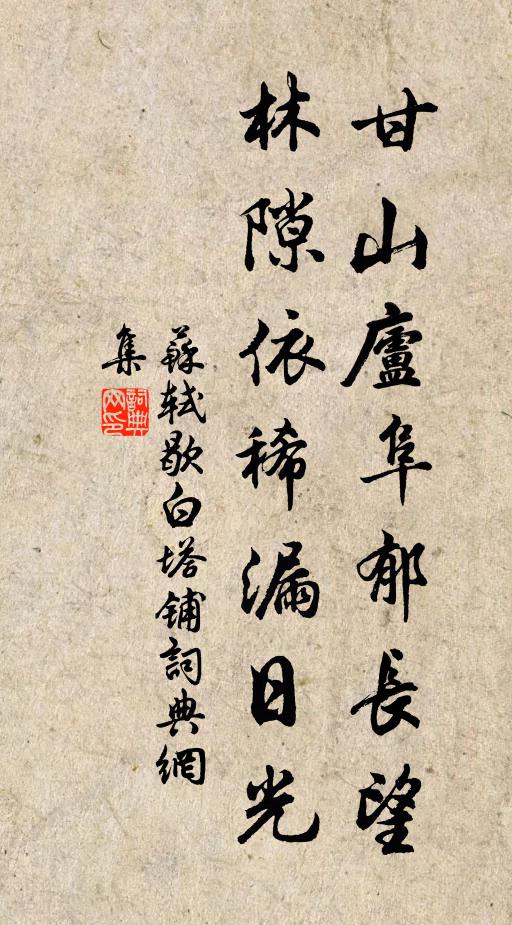 甘山廬阜郁長望
林隙依稀漏日光
蘇軾歇白塔鋪詞典網
集
詞典
网印